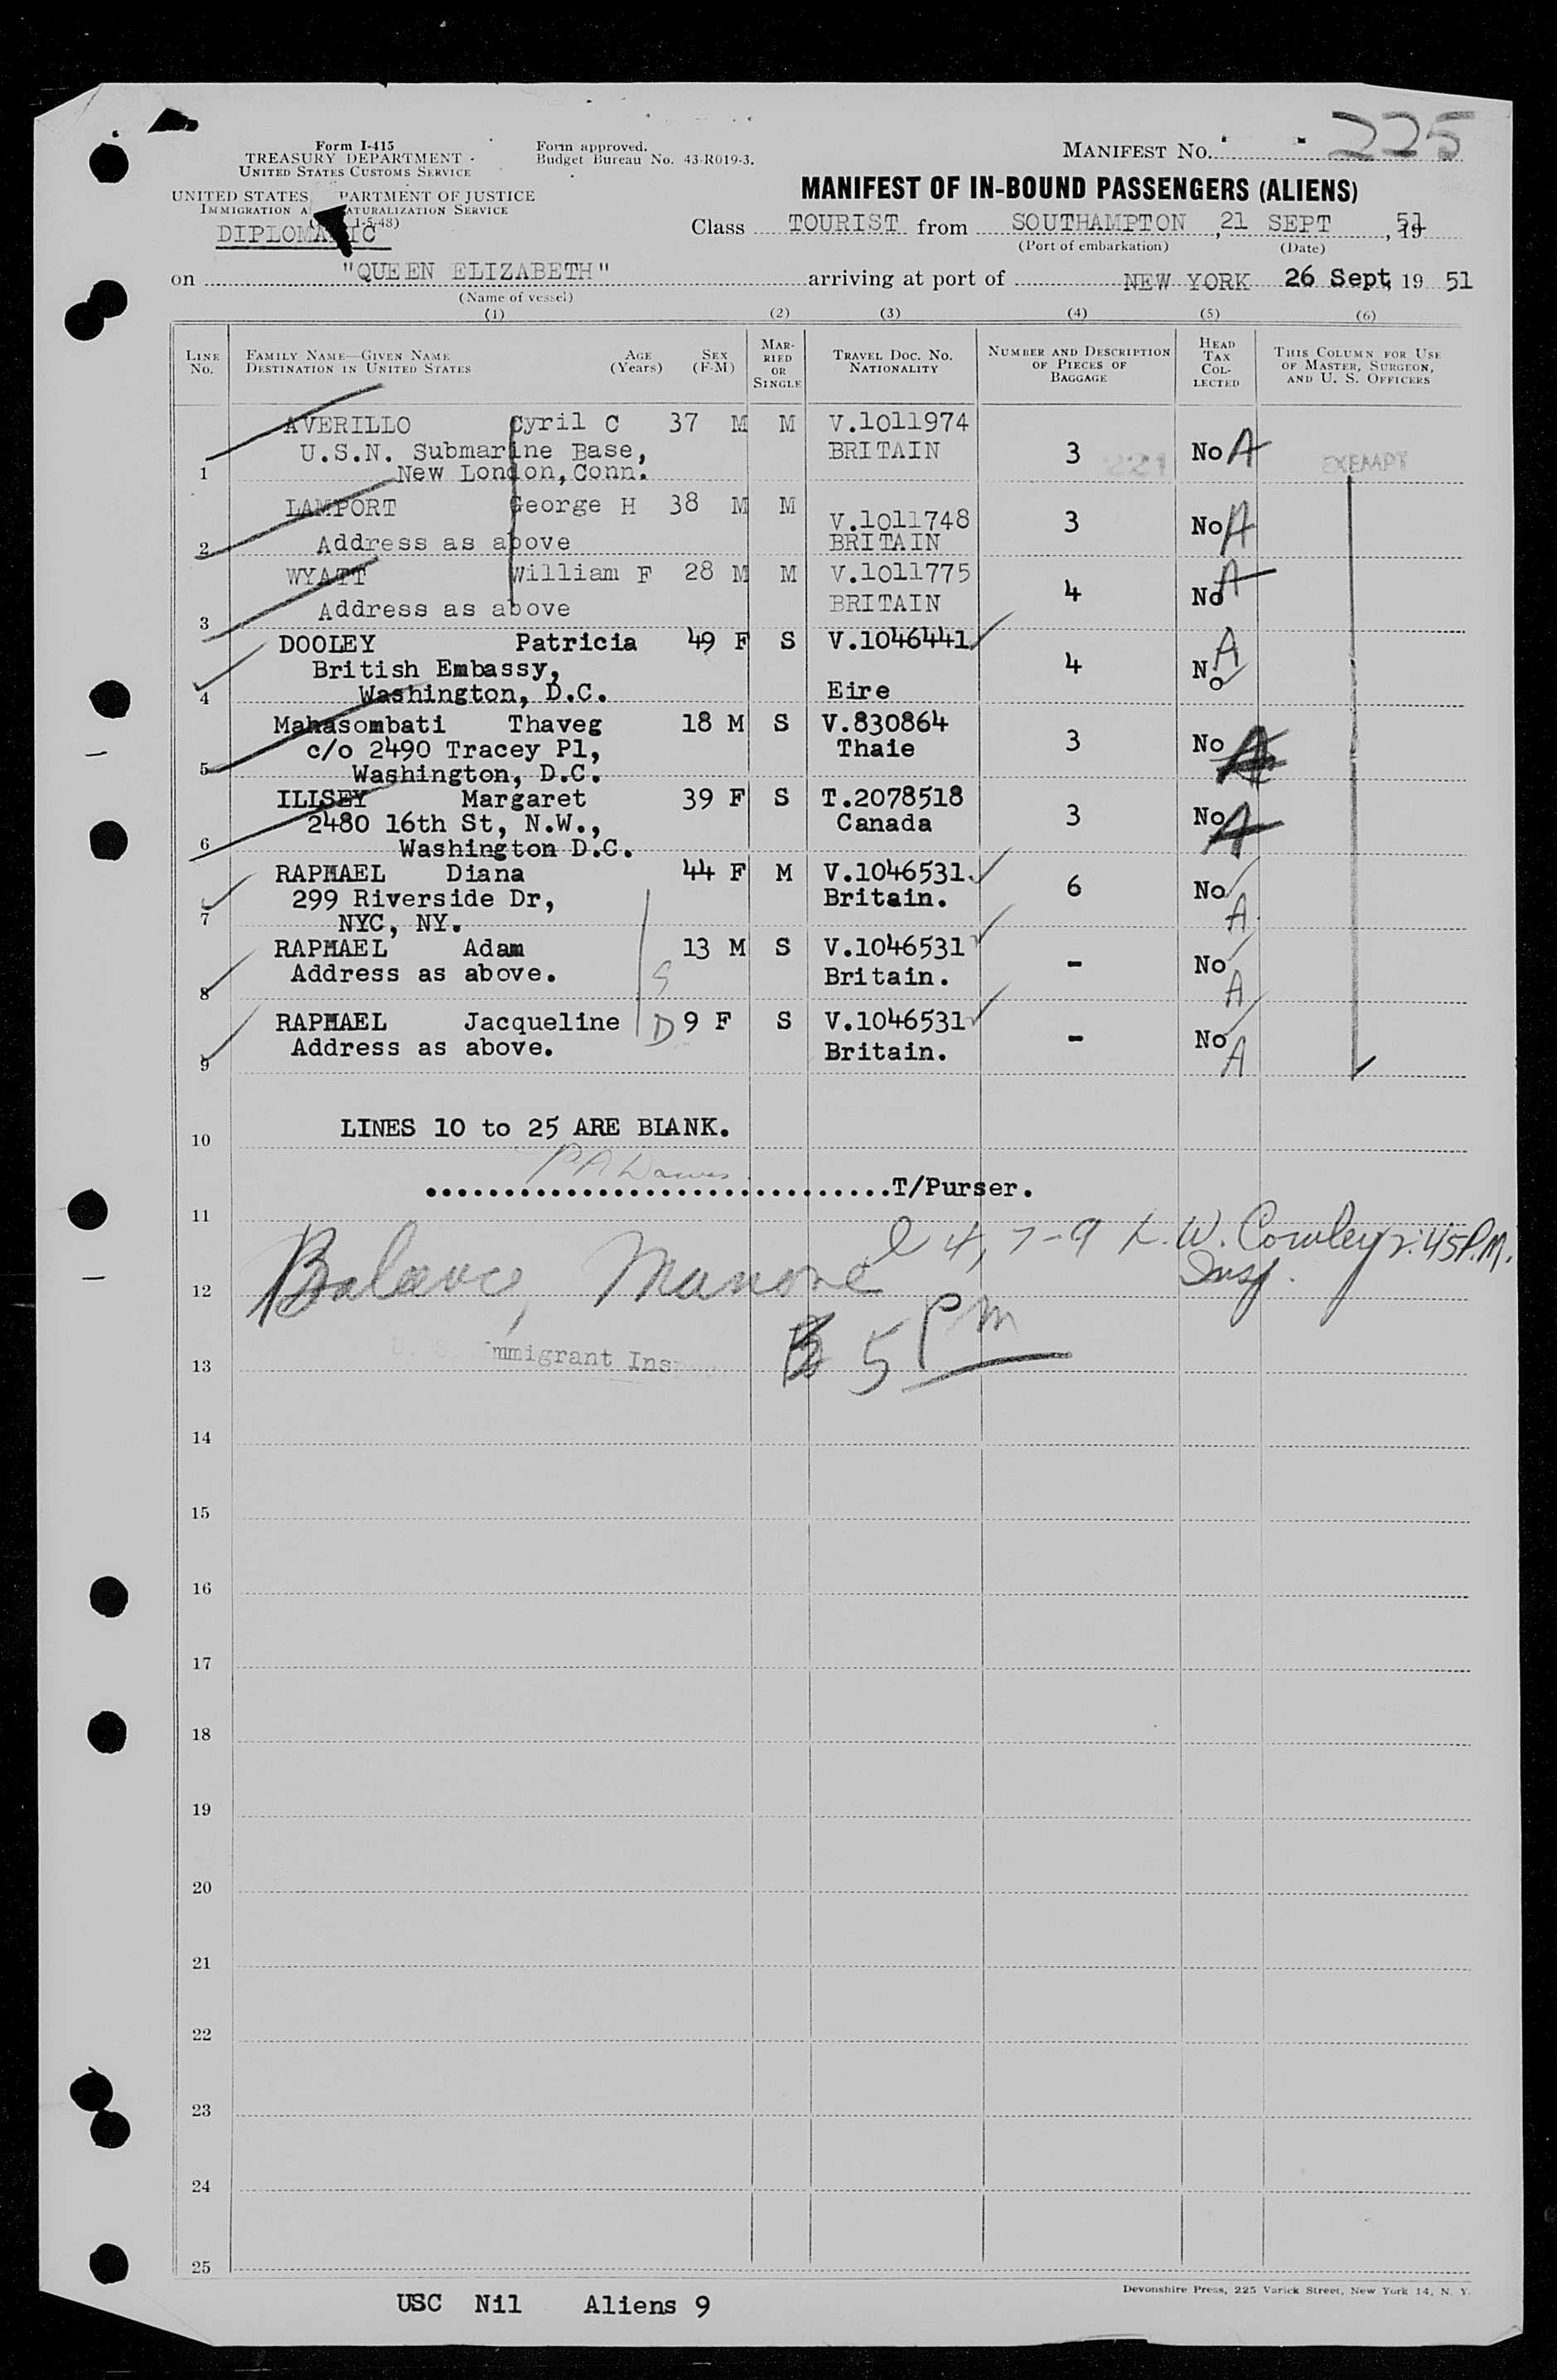 225
Form I-415
TREASURY DEPARTMENT
UNITED STATES CUSTOMS SERVICE
Form approved.
Budget Bureau No. 43-R019-3.
MANIFEST NO.
UNITED STATES PARTMENT OF JUSTICE
IMMIGRATION A ATURALIZATION SERVICE
1-5-48)
DIPLOMATIC
MANIFEST OF IN-BOUND PASSENGERS (ALIENS)
Class TOURIST from SOUTHAMPTON, 21 SEPT, 1951
(Port of embarkation) (Date)
on "QUEEN ELIZABETH" arriving at port of NEW YORK 26 Sept, 19 51
(Name of vessel)
(1) (2) (3) (4) (5) (6)
LINE NO. FAMILY NAME—GIVEN NAME DESTINATION IN UNITED STATES AGE (Years) SEX (F-M) MARRIED OR SINGLE TRAVEL DOC. NO. NATIONALITY NUMBER AND DESCRIPTION OF PIECES OF BAGGAGE HEAD TAX COLLECTED THIS COLUMN FOR USE OF MASTER, SURGEON, AND U. S. OFFICERS
AVERILLO Cyril C 37 M M V.1011974
U.S.N. Submarine Base, BRITAIN 3 221 No A EXEMPT
1 New London, Conn.
LAMPORT George H 38 M M V.1011748 3 No A
2 Address as above BRITAIN
WYATT William F 28 M M V.1011775 4 No A
3 Address as above BRITAIN
DOOLEY Patricia 49 F S V.1046441
British Embassy, 4 No A
4 Washington, D.C. Eire
Mahasombati Thaveg 18 M S V.830864
c/o 2490 Tracey Pl, Thaie 3 No A
5 Washington, D.C.
ILISEY Margaret 39 F S T.2078518
2480 16th St, N.W., Canada 3 No A
6 Washington D.C.
RAPHAEL Diana 44 F M V.1046531
299 Riverside Dr, Britain. 6 No A
7 NYC, NY.
RAPHAEL Adam 13 M S V.1046531
Address as above. S Britain. - No A
8
RAPHAEL Jacqueline D 9 F S V.1046531
Address as above. Britain. - No A
9
10 LINES 10 to 25 ARE BLANK.
T/Purser.
11
l 4, 7-9 L. W. Cowley 2:45 P.M.
Insp.
12 Balance,
5 PM
13 mmigrant Ins
14
15
16
17
18
19
20
21
22
23
24
25
Devonshire Press, 225 Varick Street, New York 14, N. Y.
USC Nil Aliens 9